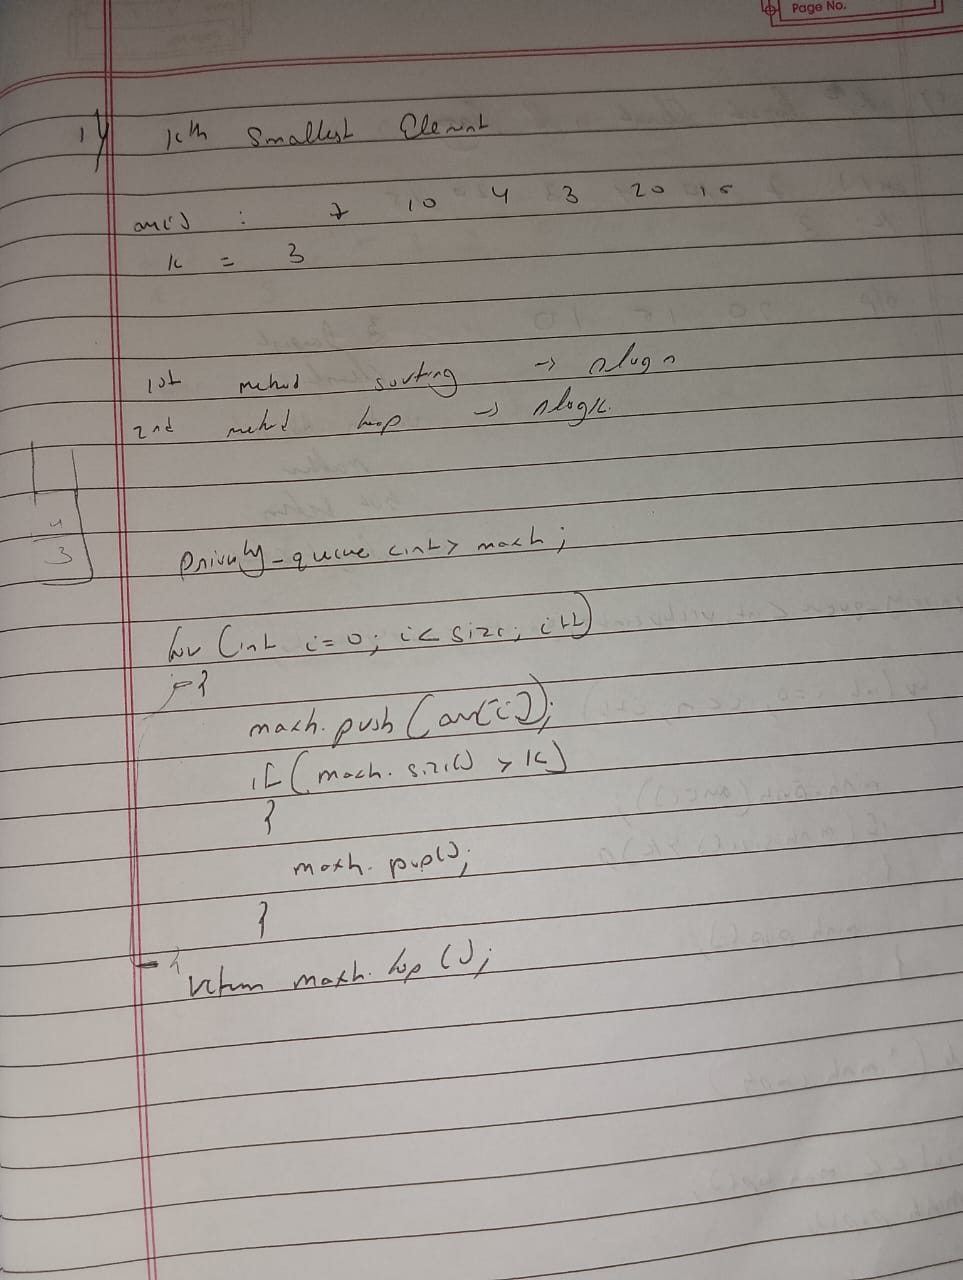 Page No.
1) Kth Smallest Element
arr[] : 7 10 4 3 20 15
k = 3
1st method sorting → nlogn
2nd method heap → nlogk.
4
3
priority_queue <int> maxh;
for (int i=0; i< size; i++)
{
maxh. push (arr[i]);
if (maxh. size() > k)
{
maxh. pop();
}
}
return maxh. top ();